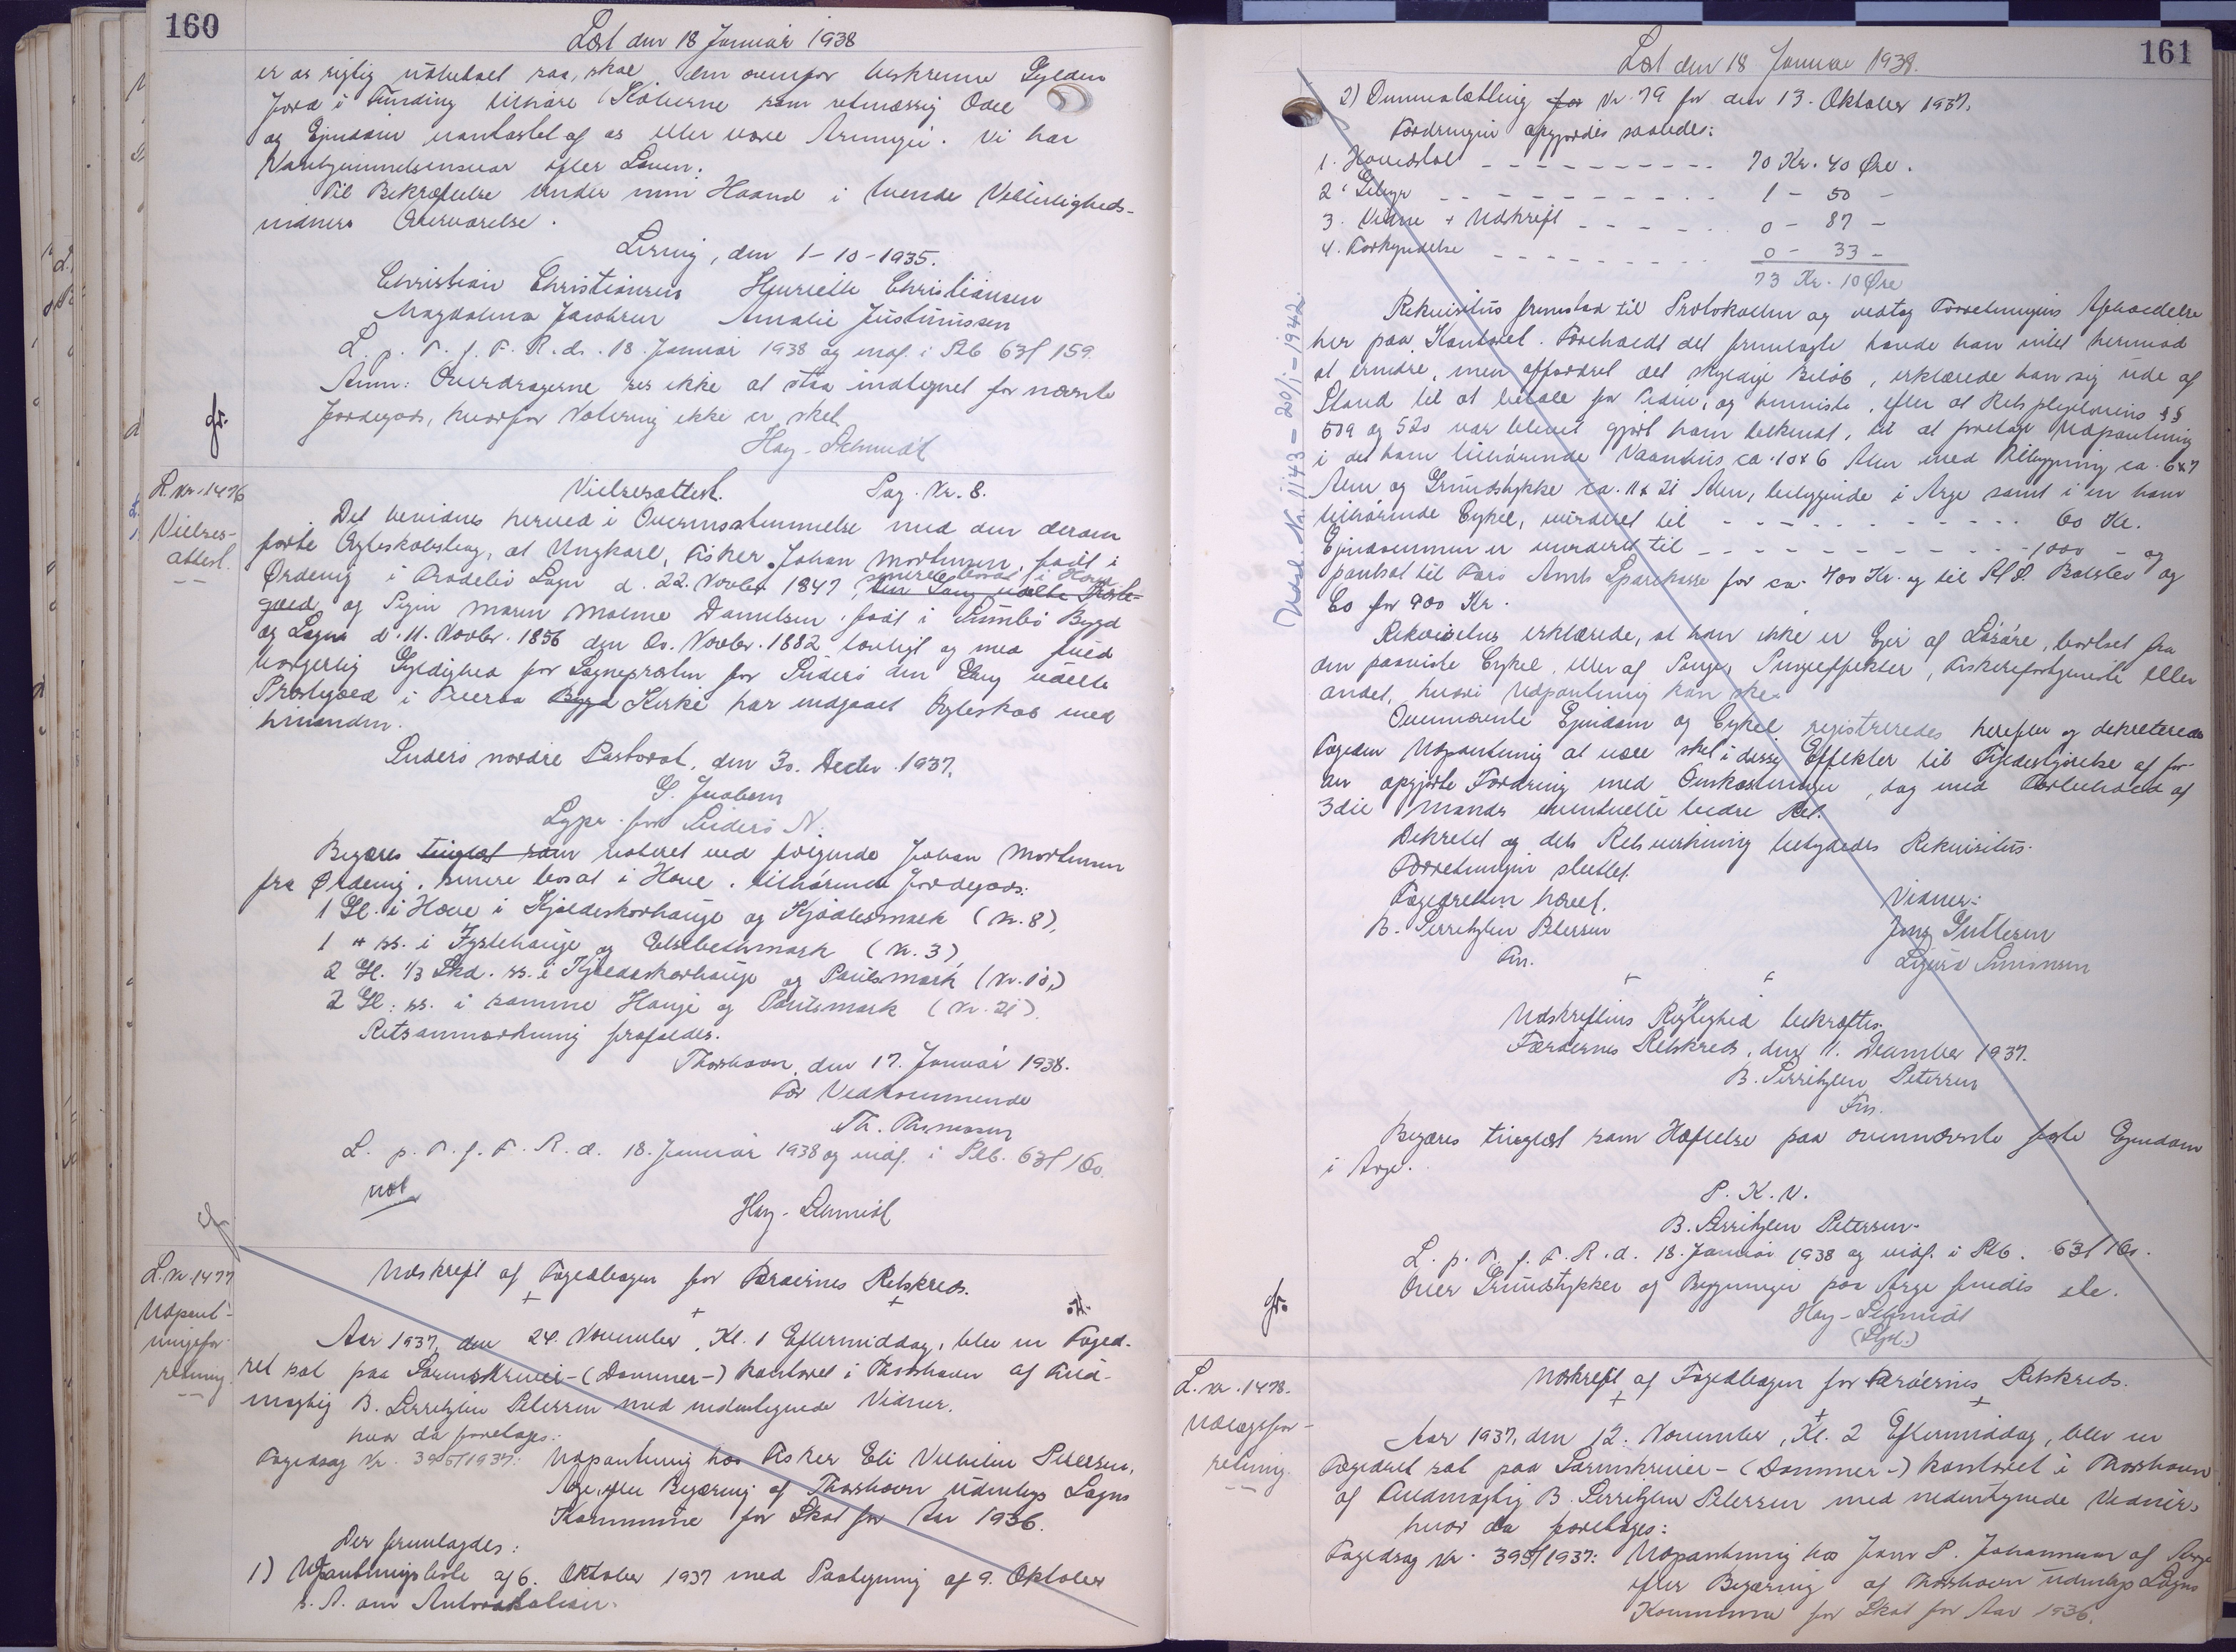 160
Læst den 18 Januar 1938
er os rigtig udbetalt saa, skal den ovenfor beskrevne Gylden
Jord i Funding tilhøre Køberne som retmæssig Odel
og Ejendom uanfægtet af os eller vore Arvinger. Vi har
Vanhjemmelsansvar efter Loven.
Til Bekræftelse under min Haand i tvende Vitterligheds-
vidners Overværelse.
Lervig, den 1-10-1935.
Christian Christiansen Henriette Christiansen
Magdalena Jacobsen Amalie Justinussen
L. p. T. f. F. R. d. 18. Januar 1938 og indf. i Ptb 63 f 159.
Anm: Overdragerne ses ikke at staa indtegnet for nævnte
Jordegods, hvorfor Notering ikke er sket.
Hay-Schmidt
gr.
L. Nr. 1476
Vielses-
attest.
Vielsesattest. Sag. Nr. 8.
Det bevidnes herved i Overensstemmelse med den derom
førte Ægteskabsbog, at Ungkarl, Fisker Johan Mortensen, født i
Ørdevig i Sogn d. 22. Novbr. 1847, senere bosat i Hove
og Pigen Maren Malene Danielsen født i Sumbø Bygd
og Sogn d. 11. Novbr. 1856 den 20. Novbr. 1882 lovligt og med fuld
borgerlig Gyldighed for Sognepræsten for Suderø den Dag udelte
Præstegæld i Tveraa Bygd Kirke har indgaaet Ægteskab med
hinanden.
Suderø nordre Pastorat, den 30. Decbr. 1937.
G. Jacobsen
Sgpr. for Suderø N.
Begæres tinglæst som noteret ved følgende Johan Mortensen
fra Ørdevig, senere bosat i Hove, tilhørende Jordegods:
1 Gl. i Hove i Kjældeskorhauge og Kjødlesmark (Nr. 8),
1 " ss. i Fyrlehauge og Elsebethmark (Nr. 3),
2 Gl. 1/3 Skd. ss. i Kjældeskorhauge og Poulsmark (Nr. 10,)
2 Gl. ss. i samme Hauge og Poulsmark (Nr. 21).
Retsanmærkning frafaldes.
Thorshavn, den 17. Januar 1938.
For Vedkommende
Th. Thomsen
L. p. T. f. F. R. d. 18. Januar 1938 og indf. i Ptb. 63 f 160.
not
Hay-Schmidt
L. Nr. 1477
Udpant-
ningsfor-
retning.
Udskrift af Fogedbogen for Færøernes Retskreds.
Aar 1937, den 24. November, Kl. 1 Eftermiddag, blev en Foged-
ret sat paa Sorenskriver-(Dommer-) kontoret i Thorshavn af Fuld-
mægtig B. Serritzlew Petersen med undertegnede Vidner,
hvor da foretoges:
Fogedsag Nr. 396/1937: Udpantning hos Fisker Eli Vilhelm Petersen,
Arge, efter Begæring af Thorshavn udenbys Sogns
Kommune for Skat for Aar 1936.
Der fremlagdes:
1) Udpantningsliste af 6. Oktober 1937 med Paategning af 9. Oktober
s. A. om Autorisation.
161
Læst den 18 Januar 1938.
2) Omsendtling for Nr. 79 for den 13. Oktober 1937.
Fordringen opgjordes saaledes:
1. Hovedstol - - - 70 Kr. 40 Øre.
2. Gebyr - - - 1 - 50 -
3. Vidne + Udskrift - - - 0 - 87 -
4. Forkyndelse - - - 0 - 33 -
73 Kr. 10 Øre
Rekvisitus fremstod til Protokollen og vedtog Forretningens Afholdelse
her paa Kontoret. Foreholdt det fremlagte havde han intet herimod
at erindre, men affordret det skyldige Beløb, erklærede han sig ude af
Stand til at betale for Tiden, og henviste, efter at Retsplejelovens §§
509 og 520 var blevet gjort ham bekendt, til at foretage Udpantning
i det ham tilhørende Vaanhus ca. 10 x 6 Alen med Tilbygning ca. 6 x 7
Alen og Grundstykke ca. 11 x 21 Alen, beliggende i Arge samt i en ham
tilhørende Cykel, vurderet til - - - 60 Kr.
Ejendommen er vurderet til - - - 1000 - og
pantsat til Færø Amts Sparekasse for ca. 400 Kr. og til Balslev og
Co for 900 Kr.
Rekvisitus erklærede, at han ikke er Ejer af Løsøre, bortset fra
den paaviste Cykel, eller af Penge, Pengeeffekter, Fiskerifortjeneste eller
andet, hvori Udpantning kan ske.
Ovennævnte Ejendom og Cykel registreredes herefter og dekreterede
Fogeden Udpantning at være sket i disse Effekter til Fyldestgørelse af for-
an opgjorte Fordring med Omkostninger, dog med Forbehold af
3die Mands eventuelle bedre Ret.
Dekretet og dets Retsvirkning betydedes Rekvisitus.
Forretningen sluttet.
Fogedretten hævet.
B. Serritzlew Petersen
Fm.
Vidner:
Jens Guttesen
Simonsen
Udskriftens Rigtighed bekræftes.
Færøernes Retskreds, den 11. December 1937.
B. Serritzlew Petersen
Fm.
Begæres tinglæst som Hæftelse paa ovennævnte faste Ejendom
i Arge.
P. K. V.
B. Serritzlew Petersen
L. p. T. f. F. R. d. 18. Januar 1938 og indf. i Ptb. 63 f 160.
Over Grundstykker og Bygninger paa Arge findes ele.
Hay-Schmidt
(Styk.)
gr.
Udsl. Nr. 1143 - 20/1 - 1942.
L. Nr. 1478.
Udlægsfor-
retning.
Udskrift af Fogedbogen for Færøernes Retskreds.
Aar 1937, den 12. November, Kl. 2 Eftermiddag, blev en
Fogedret sat paa Sorenskriver-(Dommer-) kontoret i Thorshavn
af Fuldmægtig B. Serritzlew Petersen med undertegnede Vidner,
hvor da foretoges:
Fogedsag Nr. 395/1937: Udpantning hos Jens P. Johannesen af Arge
efter Begæring af Thorshavn udenbys Sogns
Kommune for Skat for Aar 1936.